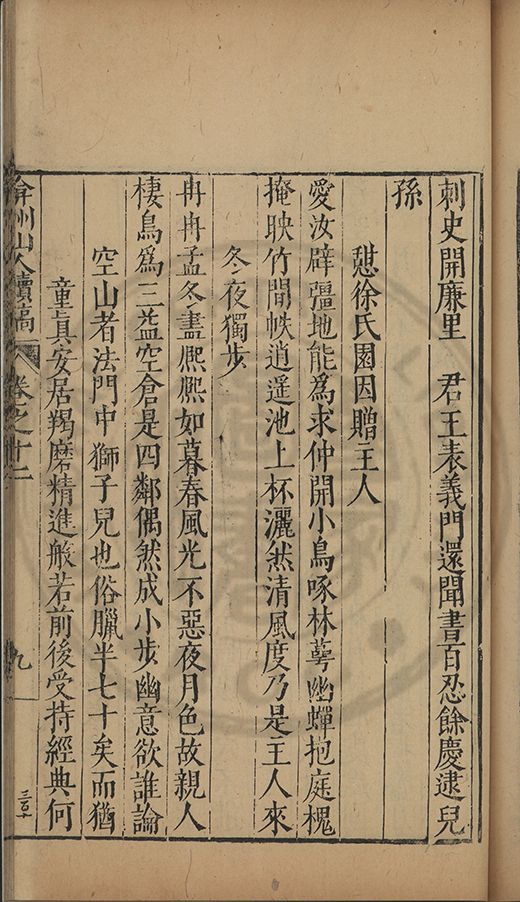 刺史開廉里　君王表義門還聞書百忍餘慶逮兒
孫
憇徐氏園因贈主人
愛汝辟彊地能爲求仲開小鳥啄林萼幽蟬抱庭槐
掩映竹間帙逍遥池上杯灑然清風度乃是主人來
冬夜獨步
冉冉孟冬盡熈熈如暮春風光不惡夜月色故親人
棲鳥爲三益空倉是四鄰偶然成小步幽意欲誰論
空山者法門中獅子兒也俗臘半七十矣而猶
童眞安居羯磨精進般若前後受持經典何
弇州山人續稿　卷之十二　九